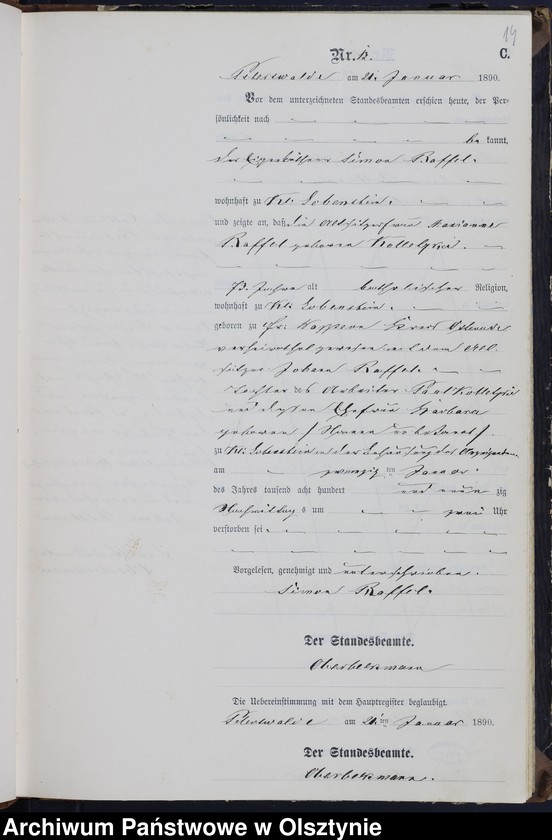 14
Nr. 12. C.
Peterswalde am 21. Januar 1890.
Vor dem unterzeichneten Standesbeamten erschien heute, der Per-
sönlichkeit nach
be kannt,
der Eigenkäthner Simon Raffel.
wohnhaft zu Kl. Lobenstein.
und zeigte an, daß die Altsitzerfrau Marianna
Raffel geborene
Jahre alt katholischer Religion,
wohnhaft zu Kl. Lobenstein.
geboren zu Gr. Kreis
verheirathet gewesen mit dem Alt-
sitzer Johann Raffel.
Tochter des Arbeiter Paul
und dessen Ehefrau Barbara
geborene /Namen unbekannt/.
zu Kl. Lobenstein in der Behausung des
am zwanzig ten Januar
des Jahres tausend acht hundert und neun zig
Nachmittag s um zwei Uhr
verstorben sei.
Vorgelesen, genehmigt und unterschrieben.
Simon Raffel.
Der Standesbeamte.
Oberbeckmann
Die Uebereinstimmung mit dem Hauptregister beglaubigt.
Peterswalde am 21 ten Januar 1890.
Der Standesbeamte.
Oberbeckmann.
Archiwum Państwowe w Olsztynie